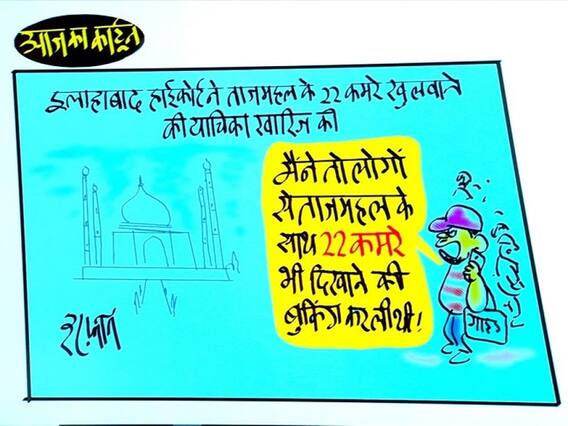 आज का कार्टून
इलाहाबाद हाईकोर्ट ने ताजमहल के 22 कमरे खुलवाने
की याचिका खारिज की
मैंने तो लोगों
से ताजमहल के
साथ 22 कमरे
भी दिखाने की
बुकिंग कर ली थी!
गाइड
इरफ़ान